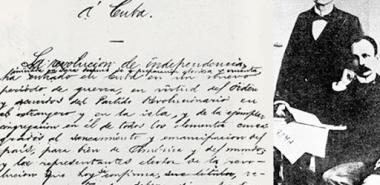 á Cuba.
La revolucion de independencia,
iniciada en Yara despues de preparacion gloriosa y cruenta,
ha entrado en Cuba en un nuevo
período de guerra, en virtud del órden
y acuerdos del Partido Revolucionario en
el extranjero y en la isla, y de la ejemplar
congregacion en él de todos los elementos consa
grados al saneamiento y emancipacion del
país, para bien de América y del mundo;
y los representantes electos de la revo-
lucion que hoy se confirma,